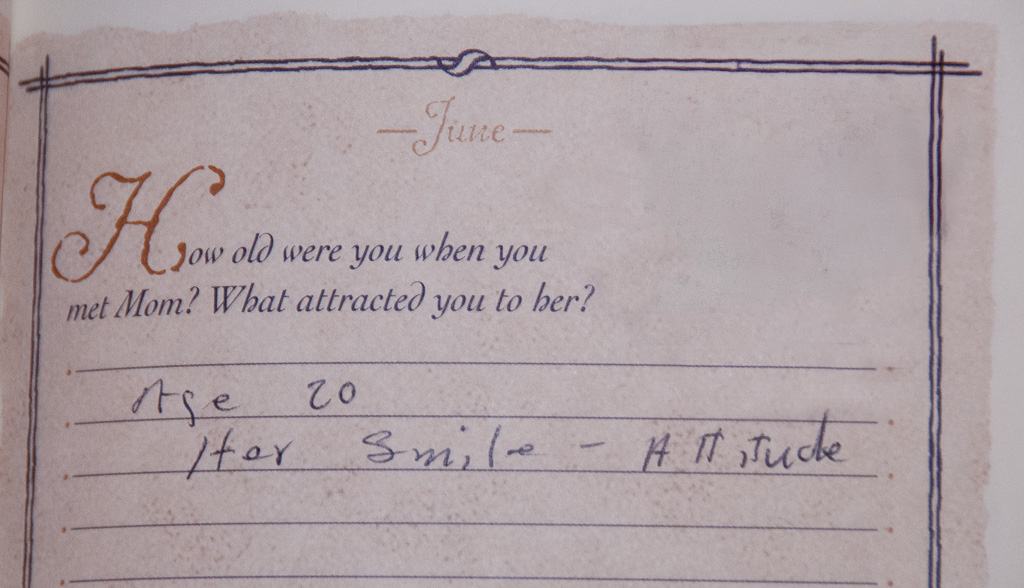 —June—
How old were you when you
met Mom? What attracted you to her?
Age 20
Her Smile - Attitude